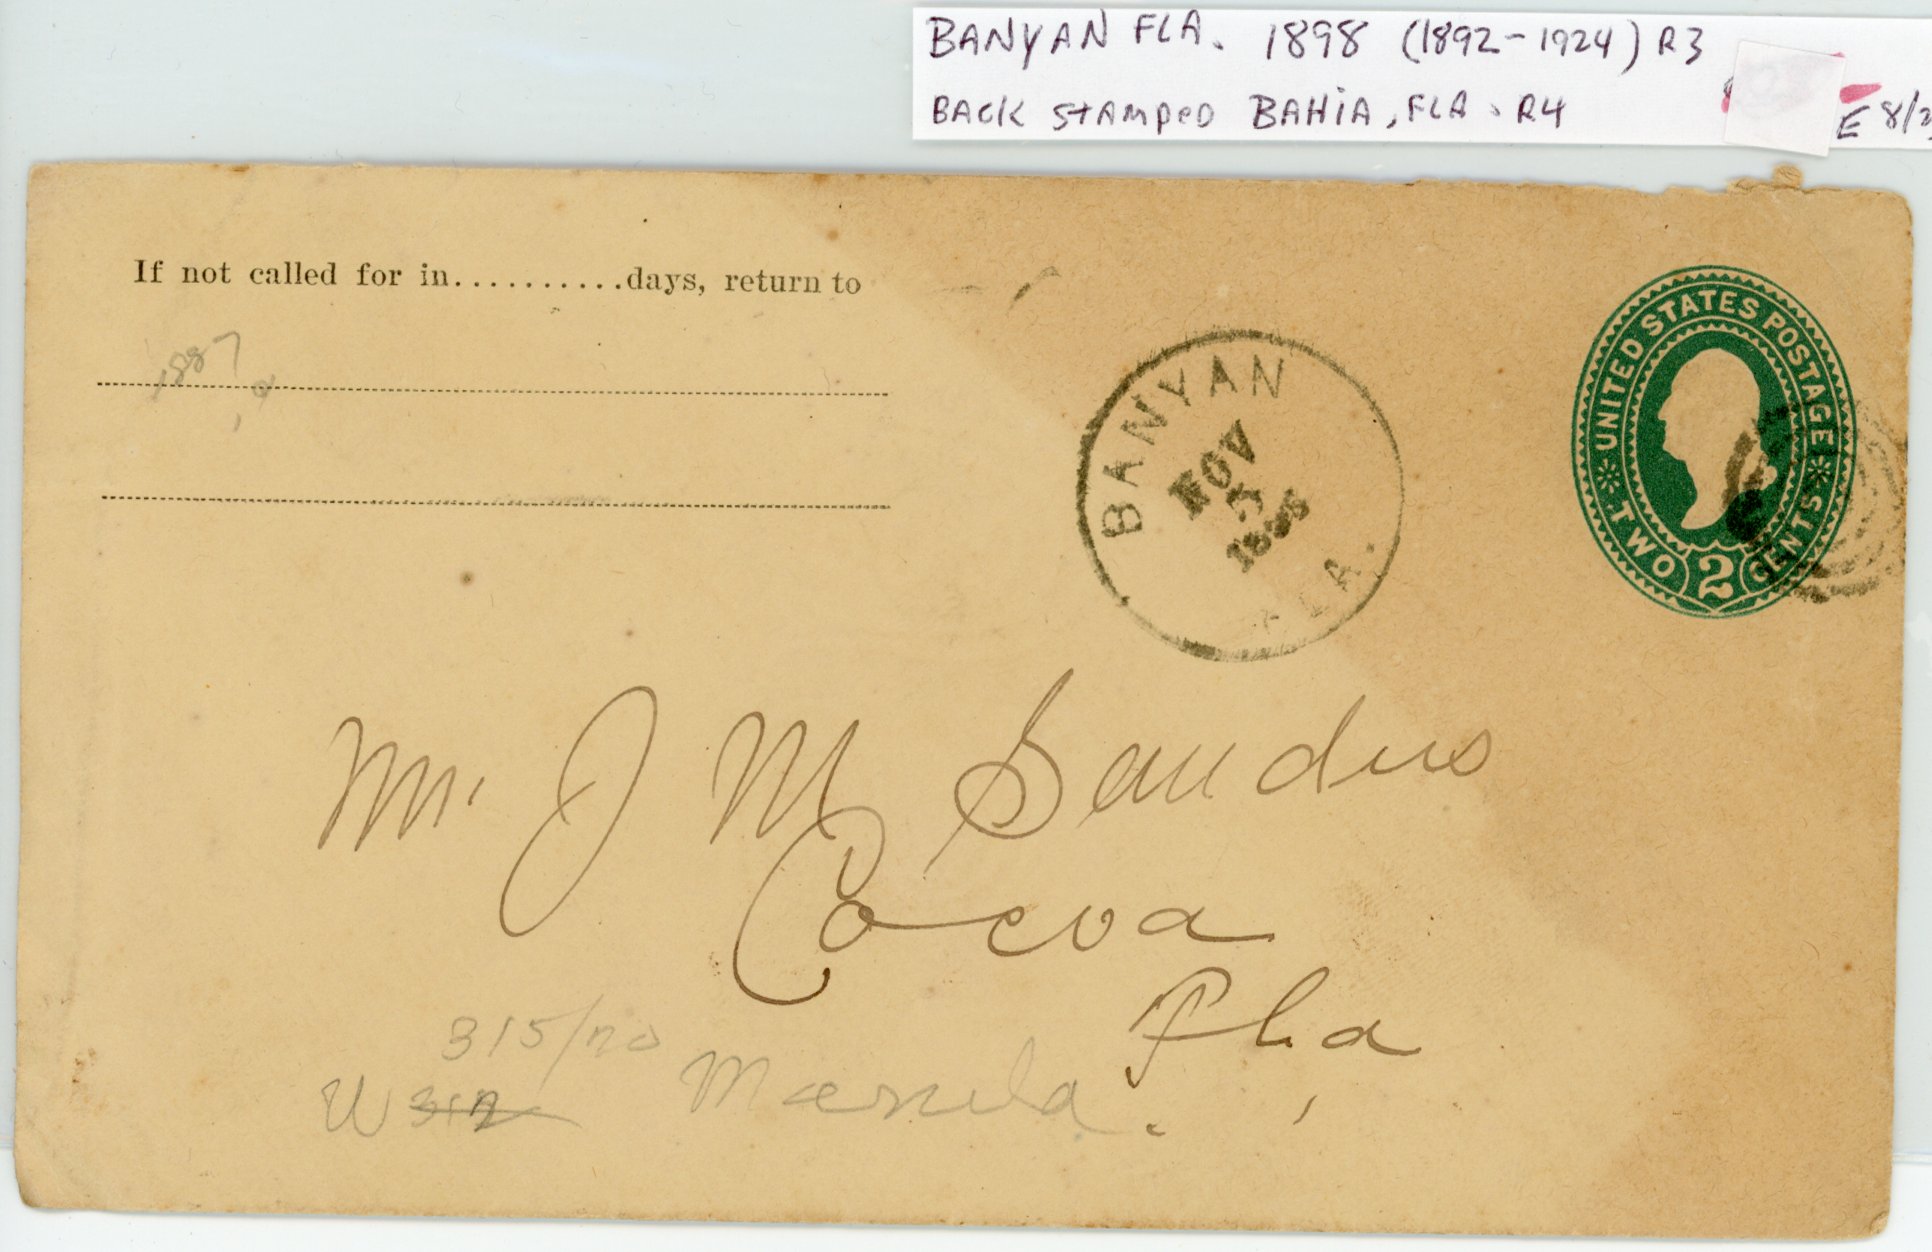 BANYAN FLA. 1898 (1892-1924) R3
BACK STAMPED BAHIA, FLA. R4
E 8/2
If not called for in..........days, return to
1887
BANYAN
NOV
FLA.
UNITED STATES POSTAGE
TWO 2 CENTS
Mr. J M Sanders
Cocoa
Fla
315/20
W 312 Manila.